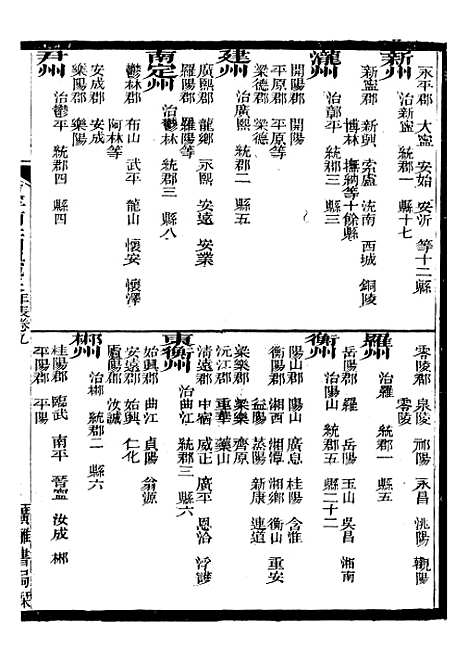 永平郡 大寧 安始 安沂 等十二縣
新州 治新寧 統郡一 縣十七
新寧郡 新興 索盧 流南 西城 銅陵
博林 撫納等十餘縣
瀧州 治
平 統郡三 縣三
開陽郡 開陽
平原郡 平原等
梁德郡 梁德
建州 治廣熙 統郡二 縣五
廣熙郡 龍鄉 永熙 安遠 安業
羅陽郡 羅陽等
南定州 治鬱林 統郡三 縣八
鬱林郡 布山 武平 龍山 懷安 懷澤
阿林等
尹州 治鬱平 統郡四 縣四
安成郡 安成
樂陽郡 樂陽
年表卷九
零陵郡 泉陵 祁陽 永昌 洮陽 觀陽
零陵
羅州 治羅 統郡一 縣五
岳陽郡 羅 岳陽 玉山 吳昌 湘南
衡州 治陽山 統郡五 縣二十二
陽山郡 陽山 廣息 桂陽 含洭
衡陽郡 湘西 湘潭 湘鄉 衡山 重安
益陽 烝陽 新康 連道
樂梁郡 樂梁 齊原
沅江郡 重華 藥山
清遠郡 中宿 威正 廣平 恩洽 浮護
東衡州 治曲江 統郡三 縣六
始興郡 曲江 貞陽 翁源
安遠郡 始興 仁化
盧陽郡 汝誠
郴州 治郴 統郡二 縣六
桂陽郡 臨武 南平 晉寧 汝成 郴
平陽郡 平陽
廣雅書局栞